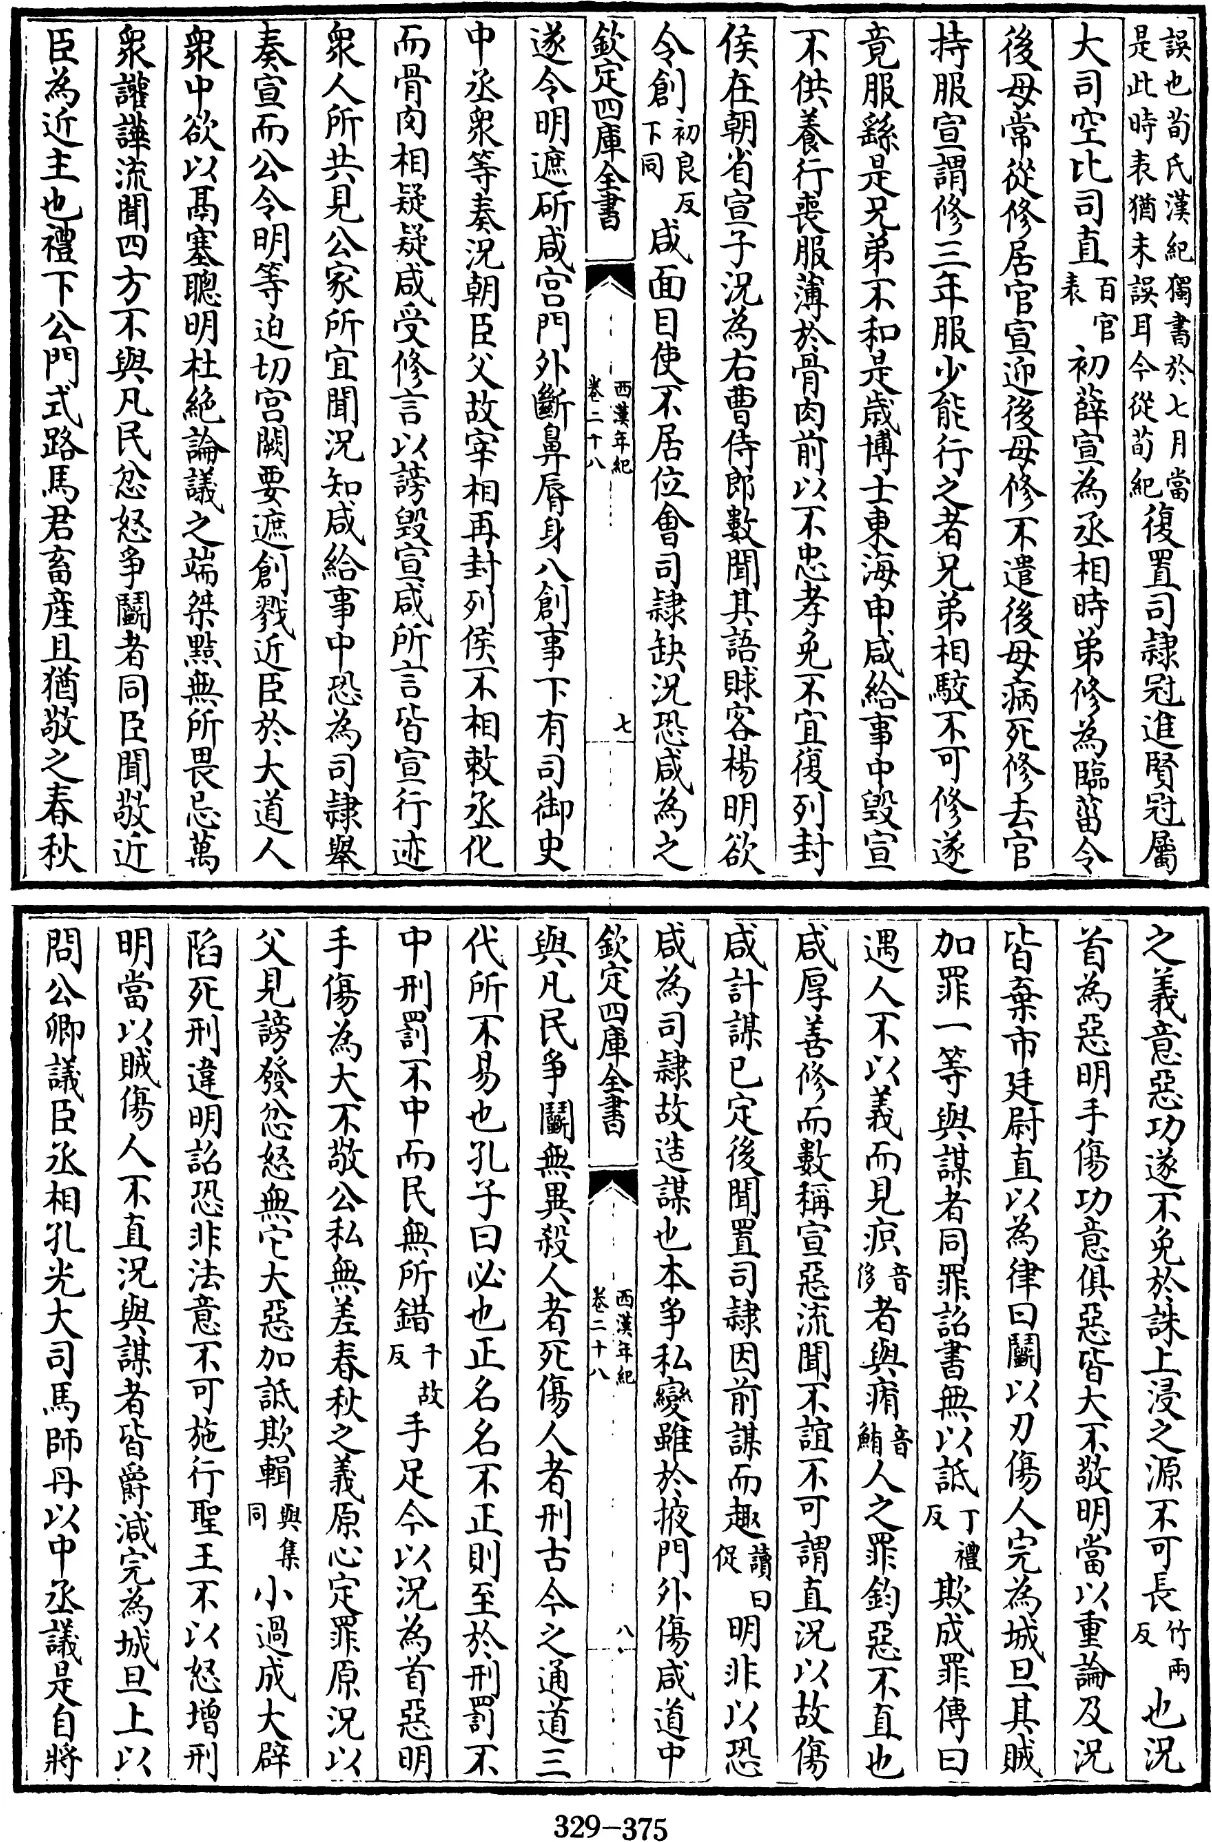 誤也荀氏漢紀獨書於七月當
是此時表猶未誤耳今從荀紀復置司隷冠進賢冠屬
大司空比司直百官表初薛宣為丞相時弟修為臨菑令
後母常從修居官宣迎後母修不遣後母病死修去官
持服宣謂修三年服少能行之者兄弟相駮不可修遂
竟服繇是兄弟不和是歲博士東海申咸給事中毀宣
不供養行喪服薄於骨肉前以不忠孝免不宜復列封
侯在朝省宣子況為右曹侍郎數聞其語賕客楊明欲
令創初良反下同咸面目使不居位會司隷缺況恐咸為之
欽定四庫全書
西漢年紀
卷二十八
七
遂令明遮斫咸宫門外斷鼻唇身八創事下有司御史
中丞衆等奏況朝臣父故宰相再封列侯不相敕丞化
而骨肉相疑疑咸受修言以謗毀宣咸所言皆宣行迹
衆人所共見公家所宜聞況知咸給事中恐為司隷舉
奏宣而公令明等迫切宫闕要遮創戮近臣於大道人
衆中欲以鬲塞聰明杜絶論議之端桀黠無所畏忌萬
衆讙譁流聞四方不與凡民忿怒争鬭者同臣聞敬近
臣為近主也禮下公門式路馬君畜産且猶敬之春秋
之義意惡功遂不免於誅上浸之源不可長竹兩反也況
首為惡明手傷功意俱惡皆大不敬明當以重論及況
皆棄市廷尉直以為律曰鬭以刃傷人完為城旦其賊
加罪一等與謀者同罪詔書無以詆丁禮反欺成罪傳曰
遇人不以義而見疻音侈者與痏音鮪人之罪鈞惡不直也
咸厚善修而數稱宣惡流聞不誼不可謂直況以故傷
咸計謀已定後聞置司隷因前謀而趣讀曰促明非以恐
咸為司隷故造謀也本争私變雖於掖門外傷咸道中
欽定四庫全書
西漢年紀
卷二十八
八
與凡民争鬭無異殺人者死傷人者刑古今之通道三
代所不易也孔子曰必也正名名不正則至於刑罰不
中刑罰不中而民無所錯千故反手足今以況為首惡明
手傷為大不敬公私無差春秋之義原心定罪原況以
父見謗發忿怒無它大惡加詆欺輯與集同小過成大辟
陷死刑違明詔恐非法意不可施行聖王不以怒增刑
明當以賊傷人不直況與謀者皆爵減完為城旦上以
問公卿議臣丞相孔光大司馬師丹以中丞議是自將
329-375